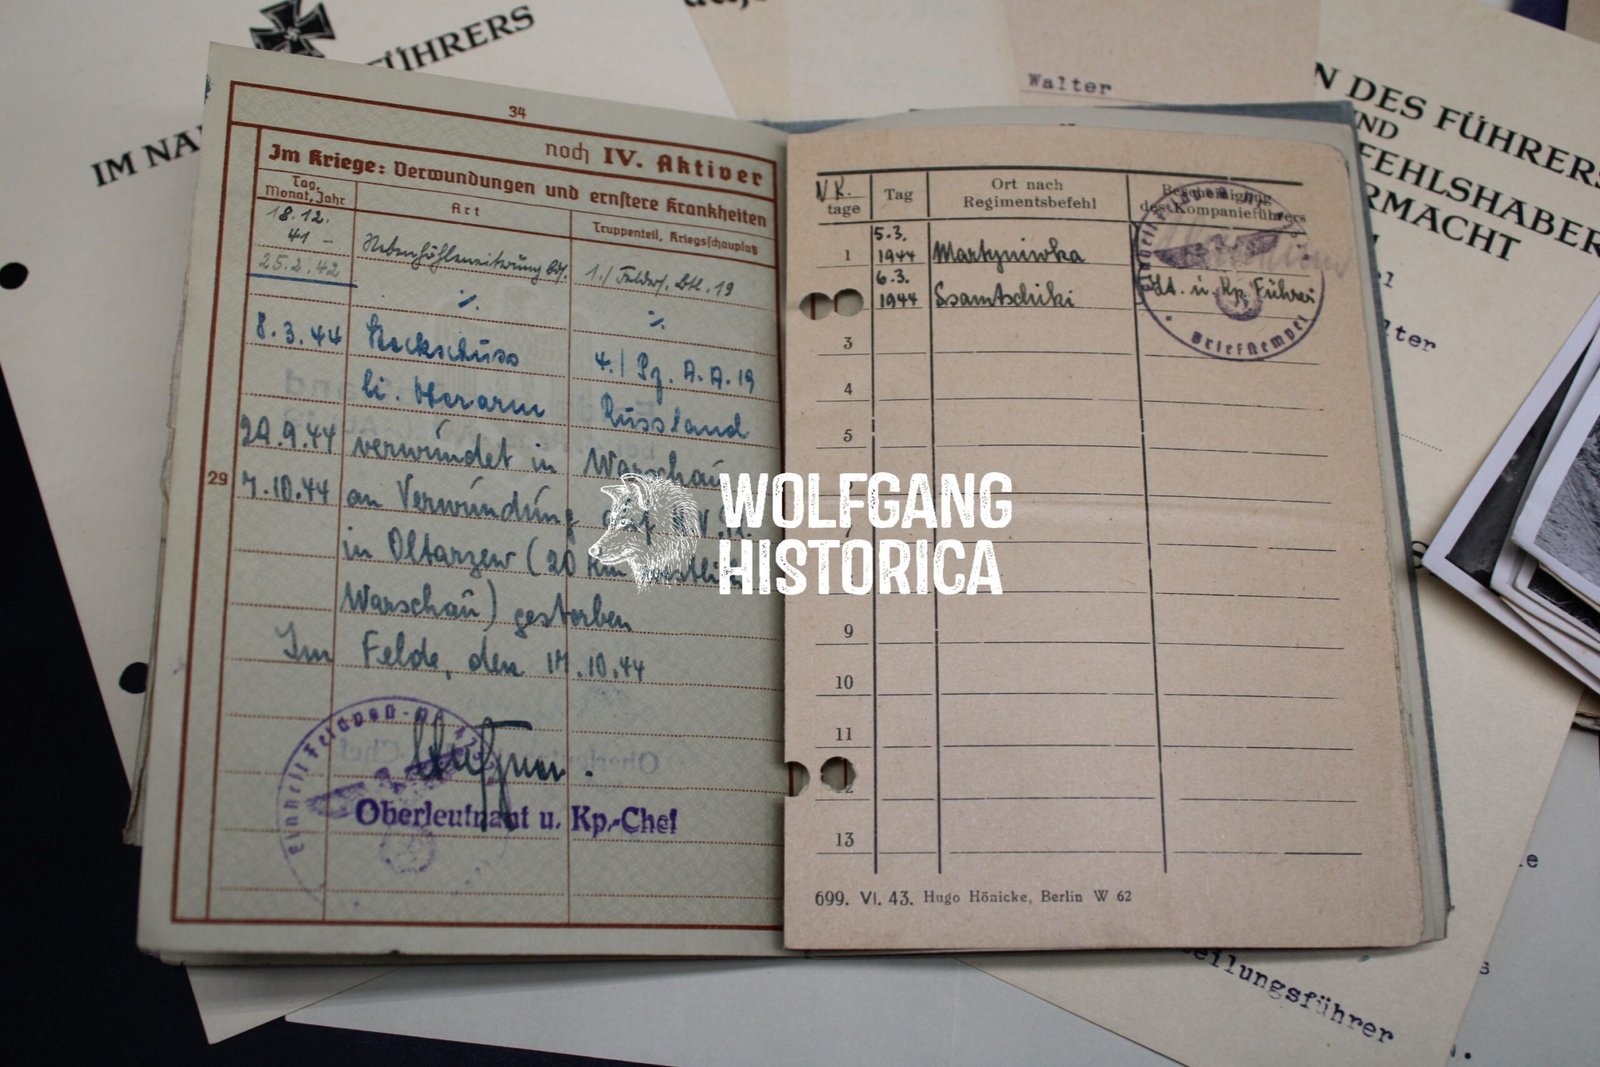 IM NA
FÜHRERS
Walter
N DES FÜHRERS
UND
FEHLSHABER
RMACHT
34
noch IV. Aktiver
Im Kriege: Verwundungen und ernstere Krankheiten
Tag, Monat, Jahr
Art
Truppenteil, Kriegsschauplatz
18.12.
41 –
25.2.42
Nebenhöhleneiterung bds.
1./ Felders. Btl. 19
8.3.44 Steckschuss 4./ Pz. A. A. 19
li. Oberarm Russland
29.9.44 verwundet in Warschau
29
7.10.44 an Verwundung auf
in Oltarzew (20 km
Warschau) gestorben
Im Felde, den 17.10.44
Einheit Feldpost-
Oberleutnant u. Kp.-Chef
WOLFGANG
HISTORICA
N.K.
tage
Tag
Ort nach
Regimentsbefehl
Bescheinigung
des Kompanieführers
1 5.3.
1944 Martyniwka
6.3.
1944 Ssamtschiki
Lt. u. Kp. Führer
Briefstempel
3
4
5
7
9
10
11
12
13
699. VI. 43. Hugo Hönicke, Berlin W 62
eilungsführer